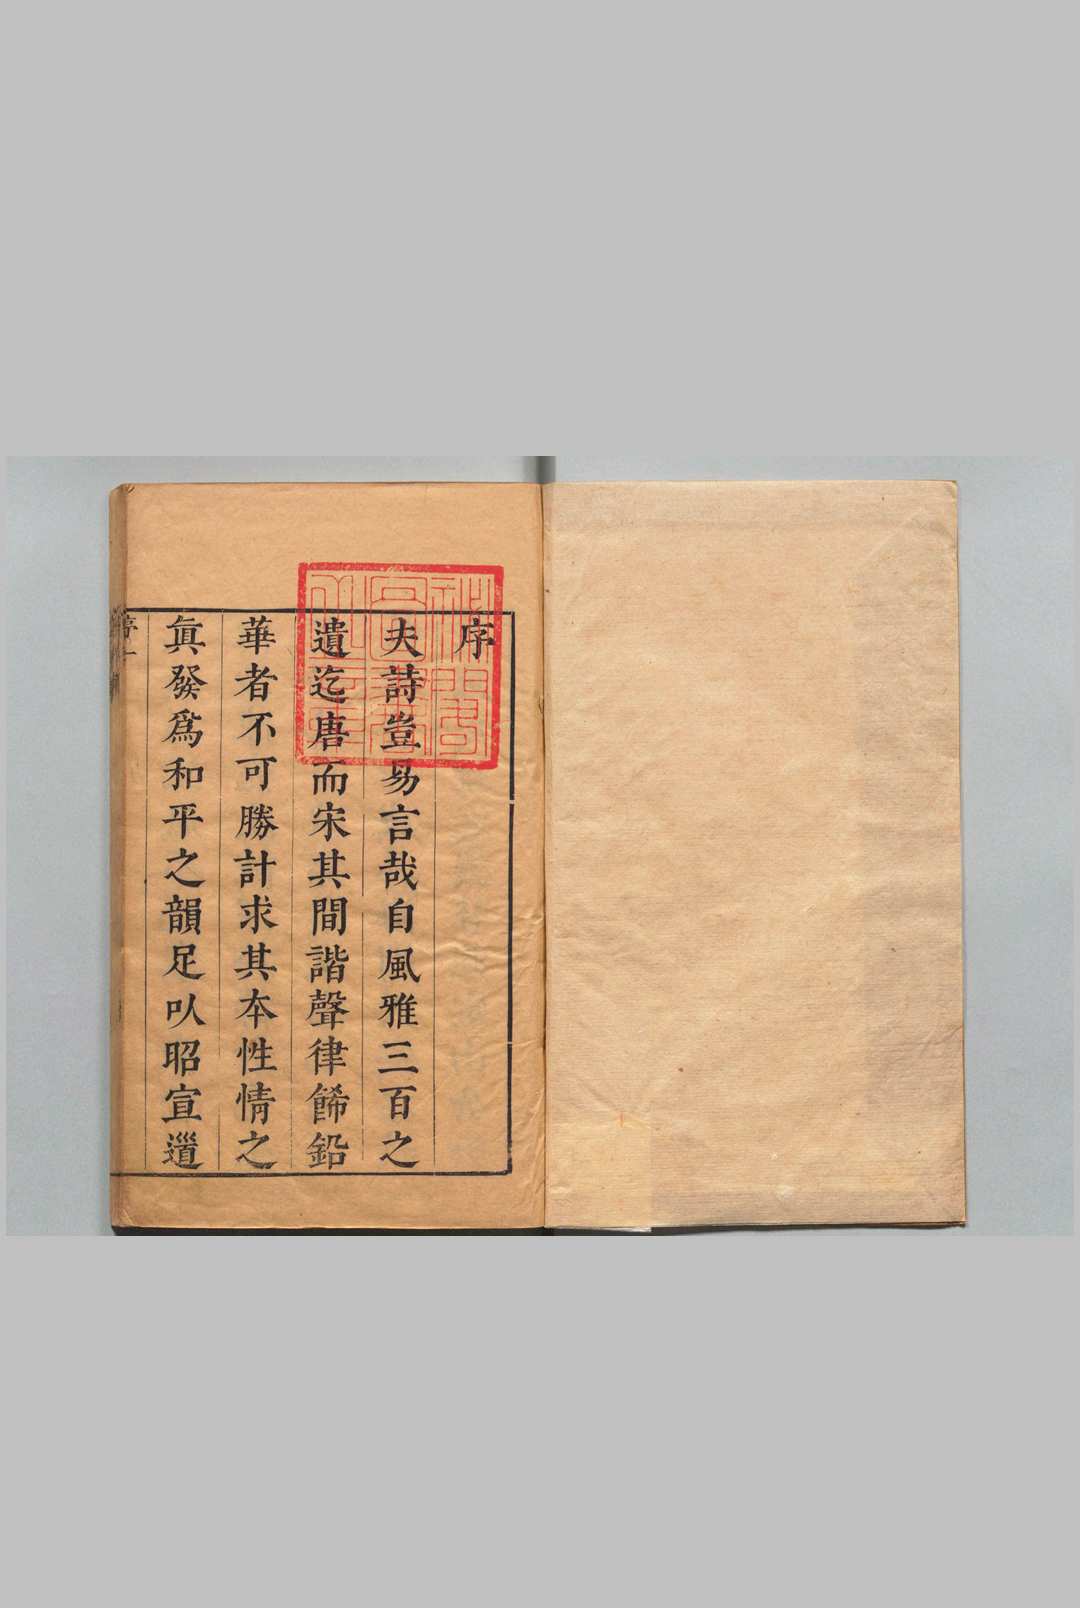 序
夫詩豈易言哉自風雅三百之
遺迄唐而宋其間諧聲律餙鉛
華者不可勝計求其本性情之
眞發爲和平之韻足㕥昭宣遒
序一